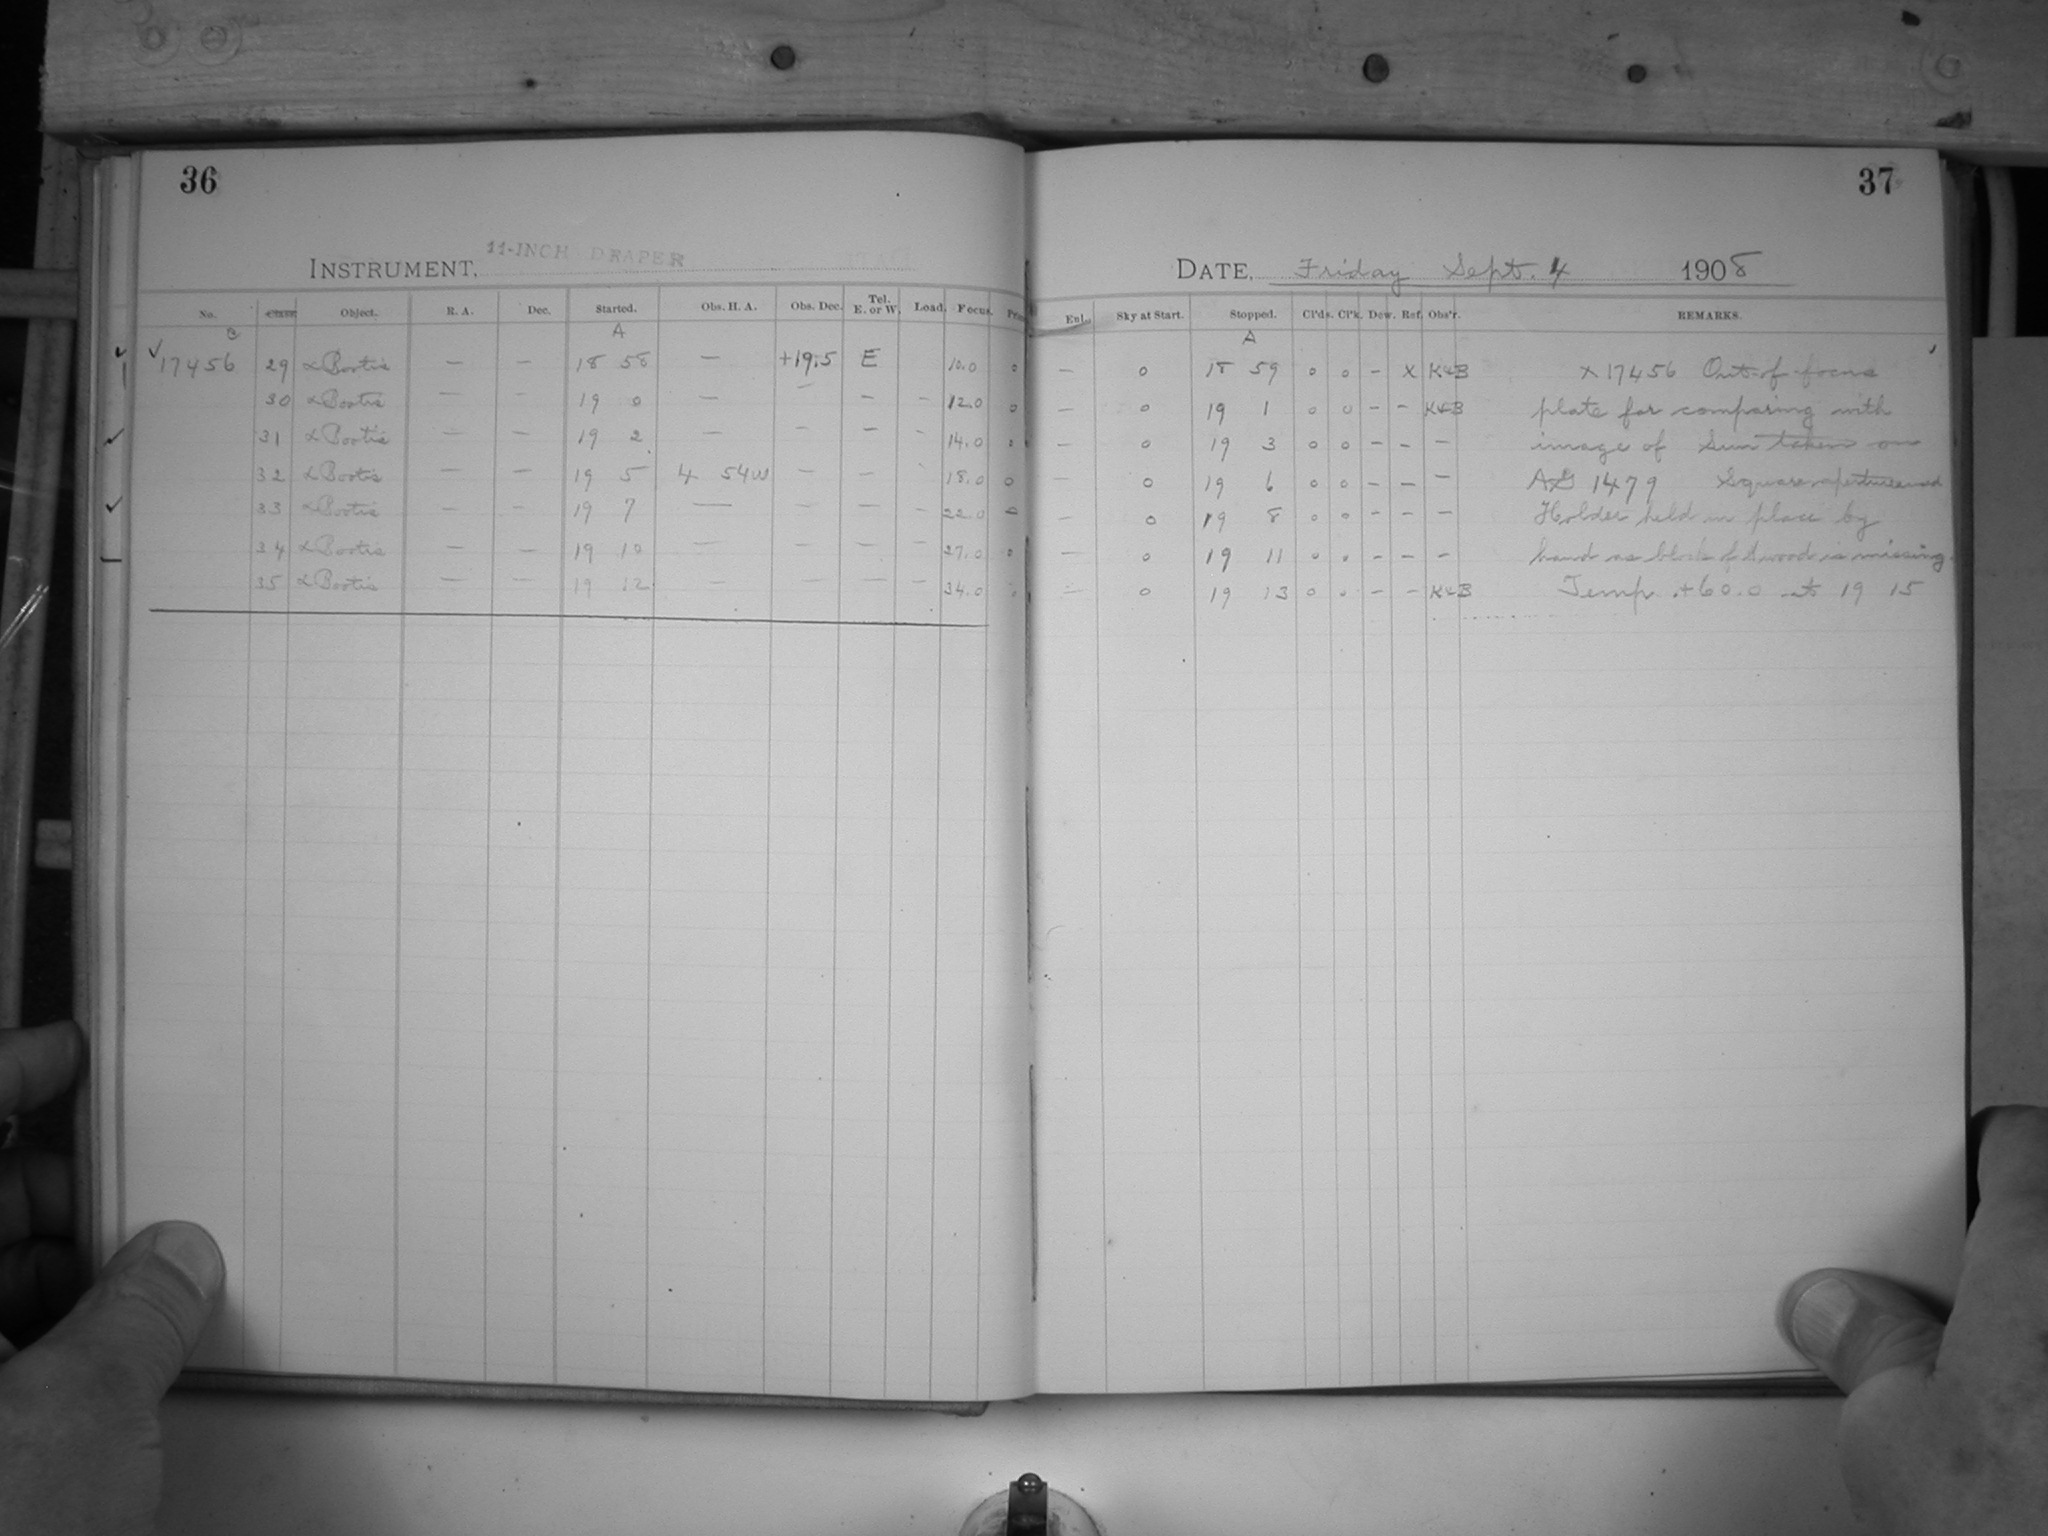 36
INSTRUMENT, 11-INCH DRAPER
No. Class Object. R. A. Dec. Started. Obs. H. A. Obs. Dec. Tel. E. or W. Load. Focus.
C A
✓17456 29 α Bootis — — 18 58 — +19.5 E 10.0 0
30 α Bootis — — 19 0 — — — – 12.0 0
31 α Bootis — — 19 2 — — — - 14.0 0
32 α Bootis — — 19 5 4 54W — — - 18.0 0
33 α Bootis — — 19 7 — — — – 22.0 0
34 α Bootis — — 19 10 — — — – 27.0 0
35 α Bootis — — 19 12 — — — – 34.0 0
37
DATE, Friday Sept. 4 1908
Enl. Sky at Start. Stopped. Cl'ds. Cl'k. Dew. Ref. Obs'r. REMARKS.
A
— 0 18 59 0 0 – X K&B X 17456 Out-of-focus
— 0 19 1 0 0 – – K&B plate for comparing with
— 0 19 3 0 0 – – – image of Sun taken on
— 0 19 6 0 0 – – – AG 1479 Square aperture used
— 0 19 8 0 0 – – – Holder held in place by
— 0 19 11 0 0 – – – hand as block of wood is missing.
— 0 19 13 0 0 – – K&B Temp. +60.0 at 19 15